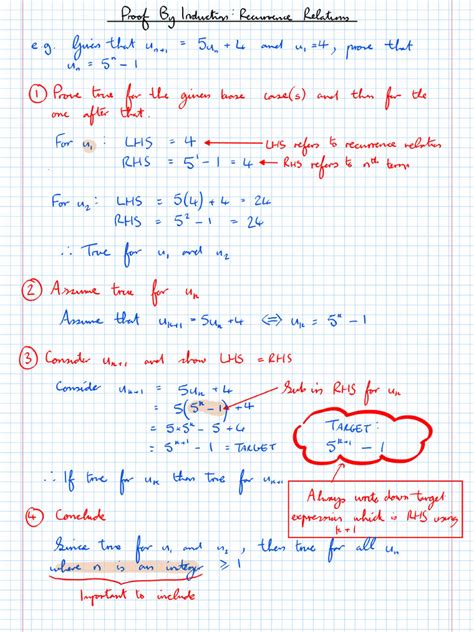 Proof By Induction: Recurrence Relations
e.g. Given that uₙ₊₁ = 5uₙ + 4 and u₁ = 4, prove that
uₙ = 5ⁿ - 1
① Prove true for the given base case(s) and then for the
one after that.
For u₁: LHS = 4 ← LHS refers to recurrence relation
RHS = 5¹ - 1 = 4 ← RHS refers to nth term
For u₂: LHS = 5(4) + 4 = 24
RHS = 5² - 1 = 24
∴ True for u₁ and u₂
② Assume true for uₖ
Assume that uₖ₊₁ = 5uₖ + 4 ⇔ uₖ = 5ᵏ - 1
③ Consider uₖ₊₁ and show LHS = RHS
Consider uₖ₊₁ = 5uₖ + 4
Sub in RHS for uₖ
= 5(5ᵏ - 1) + 4
= 5×5ᵏ - 5 + 4
= 5ᵏ⁺¹ - 1 = TARGET
TARGET:
5ᵏ⁺¹ - 1
∴ If true for uₖ then true for uₖ₊₁
Always write down target
expression which is RHS using
k+1
④ Conclude
Since true for u₁ and u₂, then true for all uₙ
where n is an integer ⩾ 1
Important to include